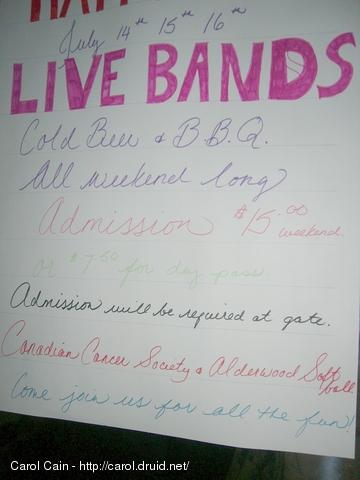 July 14th 15th 16th
LIVE BANDS
Cold Beer & B.B.Q.
All weekend long
Admission $15.00
weekend.
or $7.50 for day pass.
Admission will be required at gate.
Canadian Cancer Society & Alderwood Soft
ball
Come join us for all the fun!
Carol Cain - http://carol.druid.net/